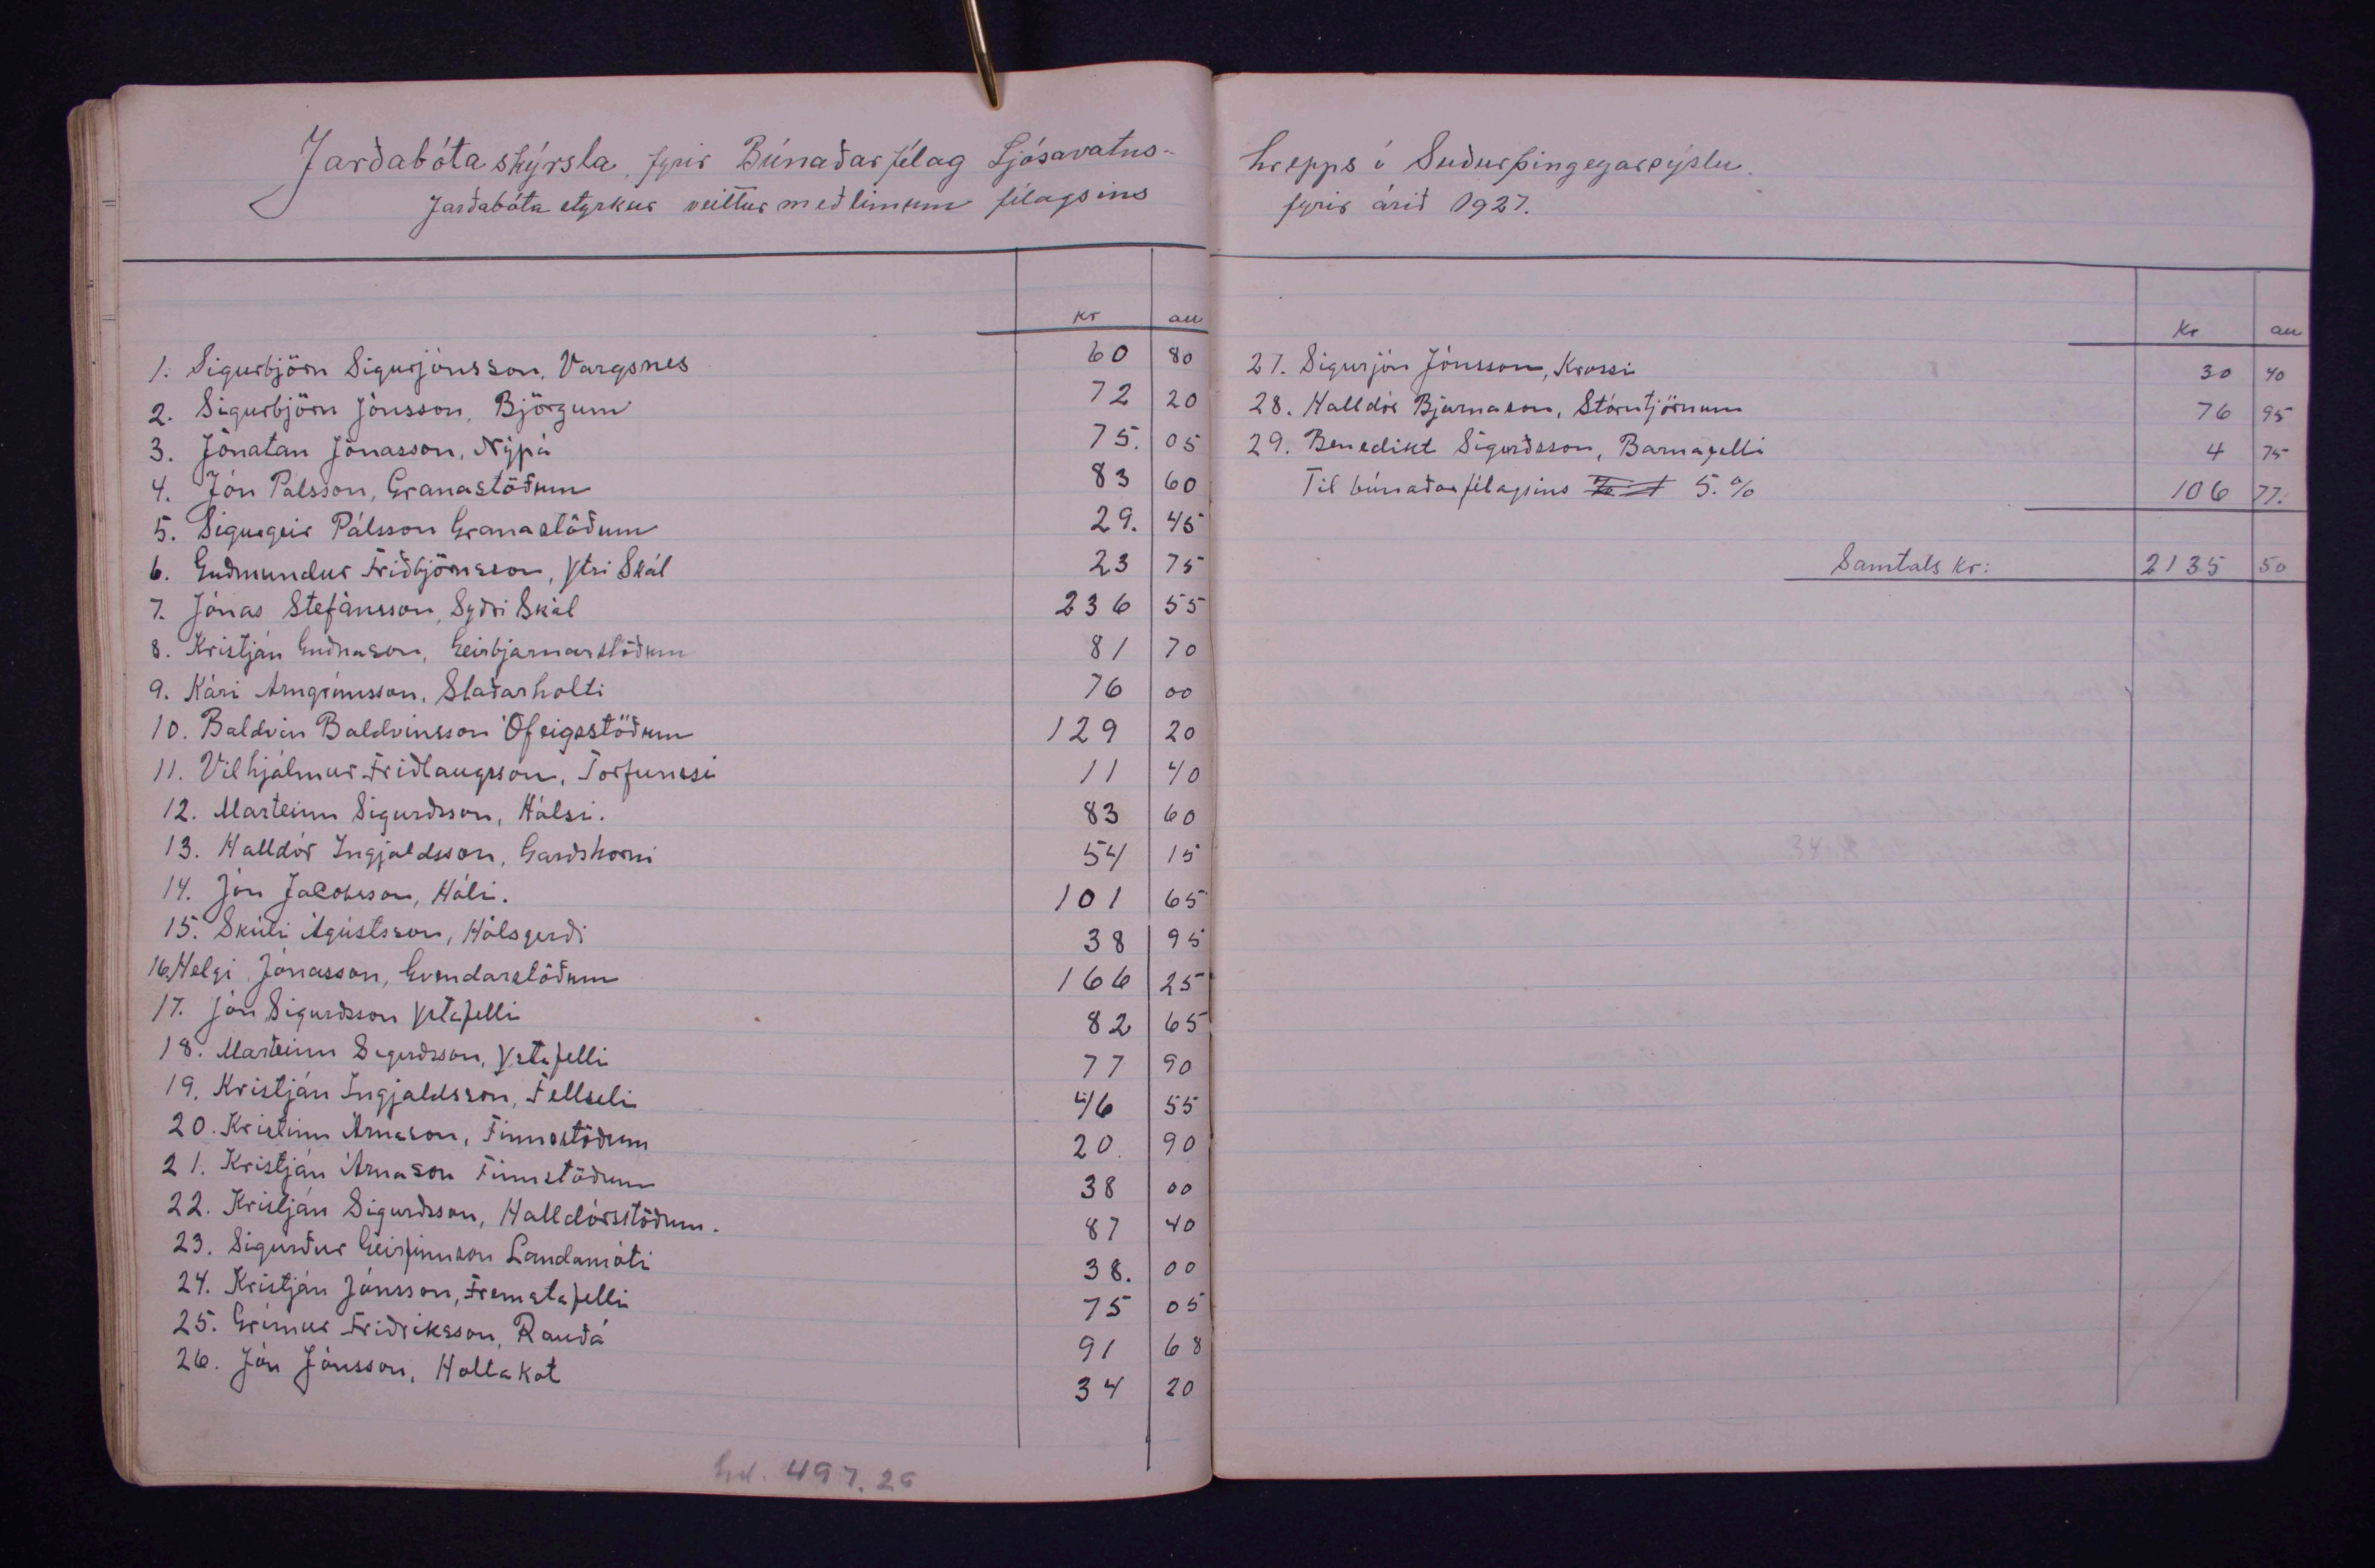 Jarðabótaskýrsla, fyrir Búnaðarfélag Ljósavatns-
Jarðabóta styrkur veittur meðlimum félagsins
kr au
1. Sigurbjörn Sigurjónsson, Vargsnes 60 80
2. Sigurbjörn Jónsson, Björgum 72 20
3. Jónatan Jónasson, Nýpá 75. 05
4. Jón Pálsson, Granastöðum 83 60
5. Sigurgeir Pálsson Granastöðum 29. 45
6. Guðmundur Friðbjörnsson, Ytri Skál 23 75
7. Jónas Stefánsson, Syðri Skál 236 55
8. Kristján Guðnason, Geirbjarnarstöðum 81 70
9. Kári Arngrímsson, Staðarholti 76 00
10. Baldvin Baldvinsson Ófeigsstöðum 129 20
11. Vilhjálmur Friðlaugsson, Torfunesi 11 40
12. Marteinn Sigurðsson, Hálsi. 83 60
13. Halldór Ingjaldsson, Garðshorni 54 15
14. Jón Jacobsson, Hóli. 101 65
15. Skúli Ágústsson, Hólsgerði 38 95
16. Helgi Jónasson, Gvendarstöðum 166 25
17. Jón Sigurðsson Ystafelli 82 65
18. Marteinn Sigurðsson, Ystafelli 77 90
19. Kristján Ingjaldsson, Fellseli 46 55
20. Kristinn Árnason, Finnsstöðum 20. 90
21. Kristján Árnason Finnstöðum 38 00
22. Kristján Sigurðsson, Halldórsstöðum. 87 40
23. Sigurður Geirfinnson Landamóti 38. 00
24. Kristján Jónsson, Fremstafelli 75 05
25. Grímur Friðriksson, Rauðá 91 68
26. Jón Jónsson, Holtakot 34 20
497.26
hrepps í Suðurþingeyarsýslu.
fyrir árið 1927.
Kr au
27. Sigurjón Jónsson, Krossi 30 40
28. Halldór Bjarnason, Stórutjörnum 76 95
29. Benedikt Sigurðsson, Barnafelli 4 75
Til búnaðarfélagsins 5.% 106 77.
Samtals kr: 2135 50